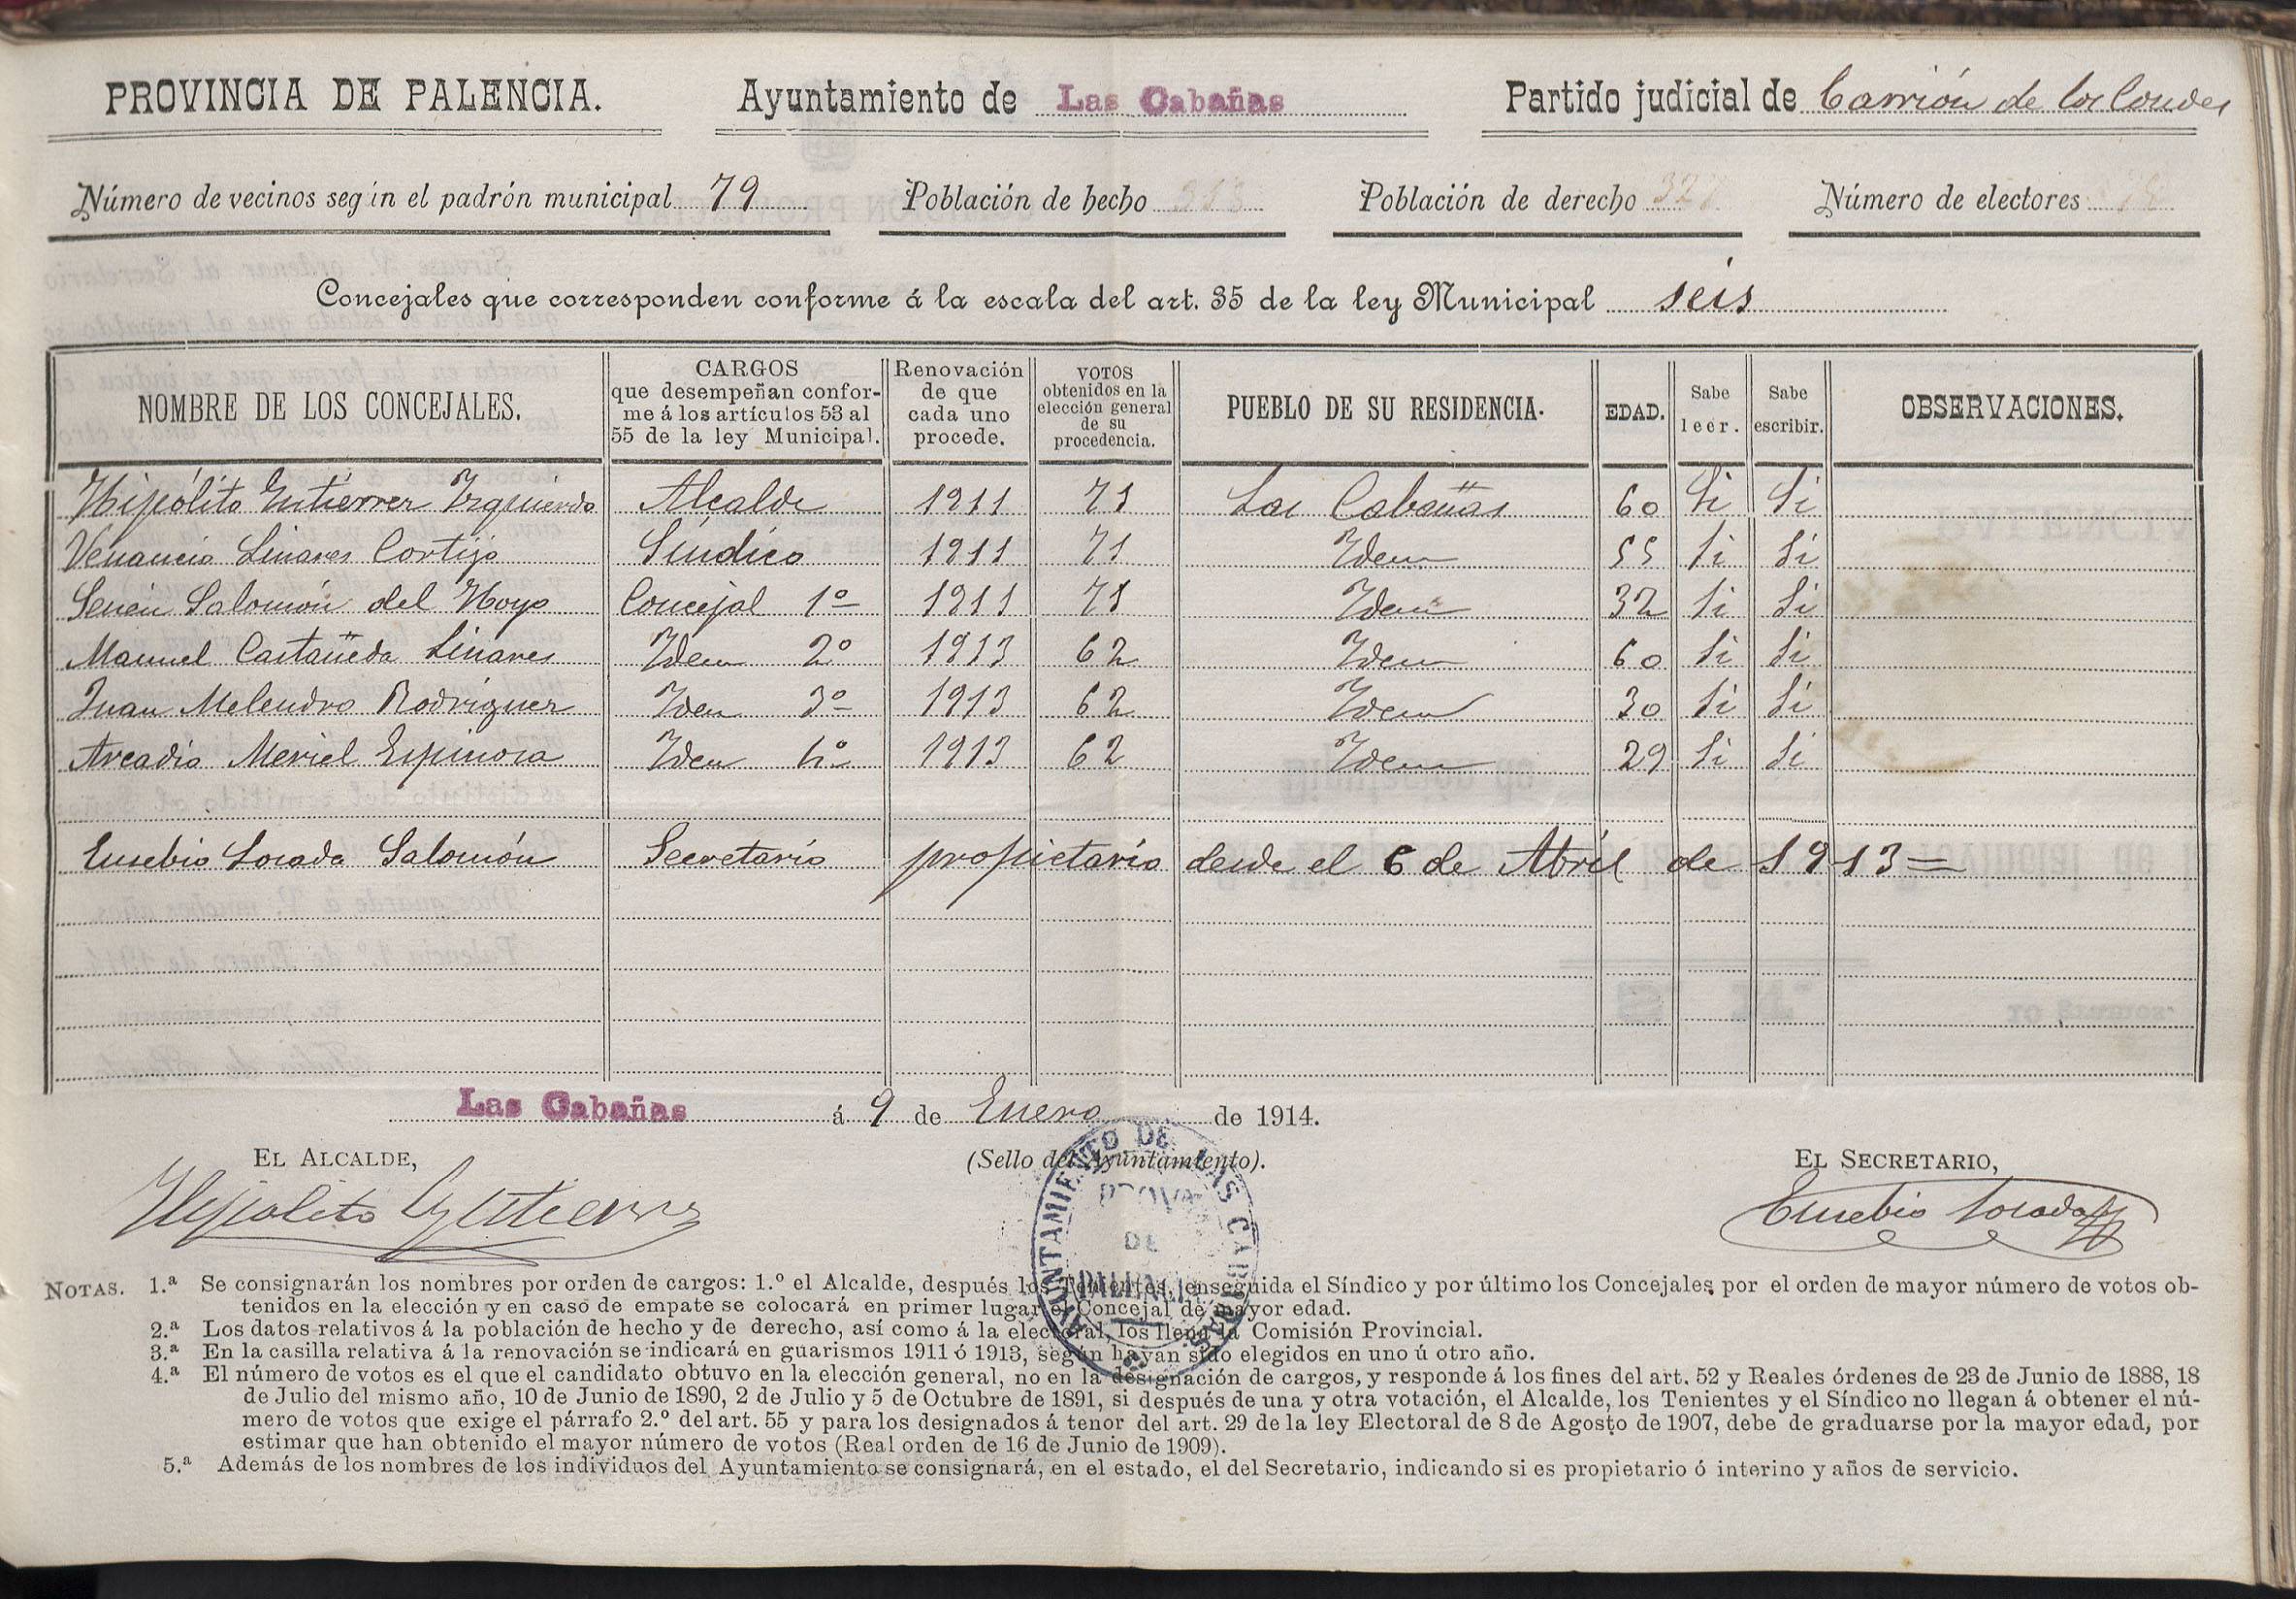 PROVINCIA DE PALENCIA. Ayuntamiento de Las Cabañas Partido judicial de Carrión de los Condes
Número de vecinos según el padrón municipal 79 Población de hecho 313 Población de derecho 32 Número de electores
Concejales que corresponden conforme á la escala del art. 35 de la ley Municipal seis
NOMBRE DE LOS CONCEJALES. CARGOS que desempeñan conforme á los artículos 53 al 55 de la ley Municipal. Renovación de que cada uno procede. VOTOS obtenidos en la elección general de su procedencia. PUEBLO DE SU RESIDENCIA. EDAD. Sabe leer. Sabe escribir. OBSERVACIONES.
Hipólito Gutierrez Izquierdo Alcalde 1911 71 Las Cabañas 60 Si Si
Venancio Linares Cortijo Sindico 1911 71 Idem 55 Si Si
Senén Salomón del Hoyo Concejal 1º 1911 71 Idem 32 Si Si
Manuel Castañeda Linares Idem 2º 1913 62 Idem 60 Si Si
Juan Melendro Rodriguez Idem 3º 1913 62 Idem 30 Si Si
Arcadio Meriel Espinosa Idem 4º 1913 62 Idem 29 Si Si
Eusebio Losada Salomón Secretario propietario desde el 6 de Abril de 1913=
Las Cabañas á 9 de Enero de 1914.
EL ALCALDE, (Sello del Ayuntamiento). EL SECRETARIO,
Hipolito Gutierrez Eusebio Losada
AYUNTAMIENTO DE LAS CABAÑAS
PROVA
DE
PALENCIA
NOTAS. 1.ª Se consignarán los nombres por orden de cargos: 1.º el Alcalde, después los Tenientes, enseguida el Síndico y por último los Concejales por el orden de mayor número de votos ob-
tenidos en la elección y en caso de empate se colocará en primer lugar el Concejal de mayor edad.
2.ª Los datos relativos á la población de hecho y de derecho, así como á la electoral, los llena la Comisión Provincial.
3.ª En la casilla relativa á la renovación se indicará en guarismos 1911 ó 1913, según hayan sido elegidos en uno ú otro año.
4.ª El número de votos es el que el candidato obtuvo en la elección general, no en la designación de cargos, y responde á los fines del art. 52 y Reales órdenes de 23 de Junio de 1888, 18
de Julio del mismo año, 10 de Junio de 1890, 2 de Julio y 5 de Octubre de 1891, si después de una y otra votación, el Alcalde, los Tenientes y el Síndico no llegan á obtener el nú-
mero de votos que exige el párrafo 2.º del art. 55 y para los designados á tenor del art. 29 de la ley Electoral de 8 de Agosto de 1907, debe de graduarse por la mayor edad, por
estimar que han obtenido el mayor número de votos (Real orden de 16 de Junio de 1909).
5.ª Además de los nombres de los individuos del Ayuntamiento se consignará, en el estado, el del Secretario, indicando si es propietario ó interino y años de servicio.